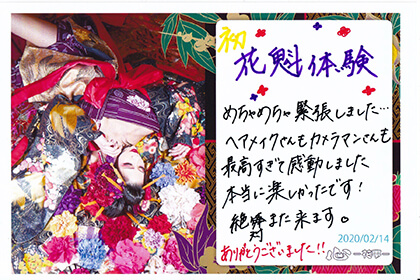 初
花魁体験
めちゃめちゃ緊張しました…
ヘアメイクさんもカメラマンさんも
最高すぎて感動しました
本当に楽しかったです！
絶対また来ます。
ありがとうございました!!
2020/02/14